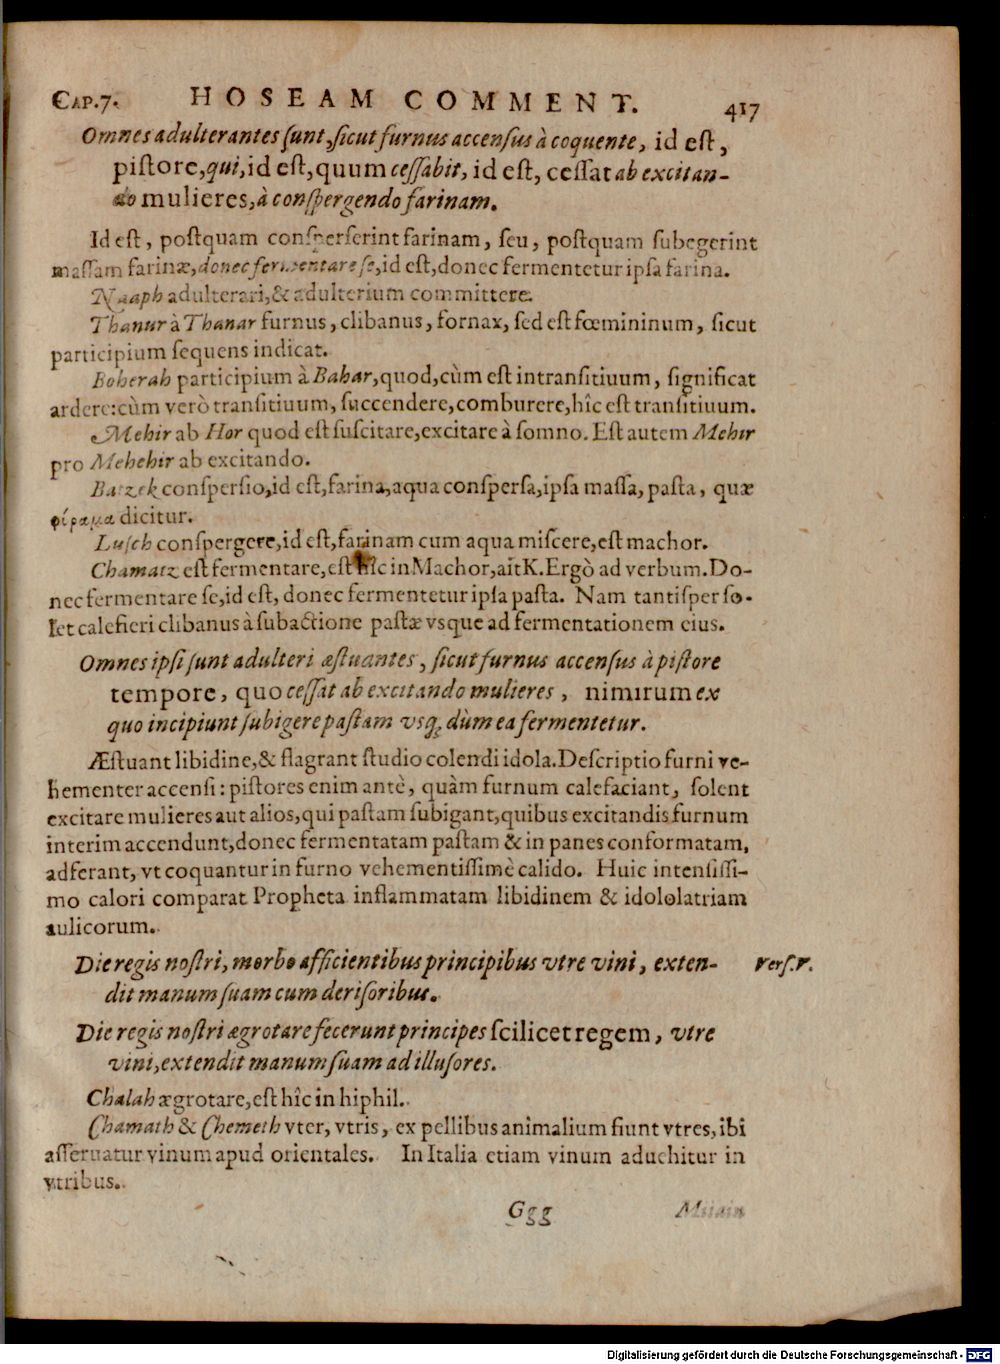 CAP.7. HOSEAM COMMENT. 417
Omnes adulterantes ſunt,ſicut furnus accenſus à coquente, id eſt,
piſtore,qui,id eſt,quum ceſſabit, id eſt, ceſſat ab excitan-
do mulieres,à conſpergendo farinam.
Id eſt, poſtquam conſperſerint farinam, ſeu, poſtquam ſubegerint
maſſam farinæ,donec fermentare ſe,id eſt,donec fermentetur ipſa farina.
Naaph adulterari,& adulterium committere.
Thanur à Thanar furnus, clibanus, fornax, ſed eſt fœmininum, ſicut
participium ſequens indicat.
Boherah participium à Bahar,quod,cùm eſt intranſitiuum, ſignificat
ardere:cùm verò tranſitiuum, ſuccendere,comburere,hîc eſt tranſitiuum.
Mehir ab Hor quod eſt ſuſcitare,excitare à ſomno. Eſt autem Mehir
pro Mehehir ab excitando.
Batzek conſperſio,id eſt,farina,aqua conſperſa,ipſa maſſa, paſta, quæ
φύραμα dicitur.
Luſch conſpergere,id eſt,farinam cum aqua miſcere,eſt machor.
Chamatz eſt fermentare,eſt hîc in Machor,ait K.Ergò ad verbum.Do-
nec fermentare ſe,id eſt, donec fermentetur ipſa paſta. Nam tantiſper ſo-
let calefieri clibanus à ſubactione paſtæ vsque ad fermentationem eius.
Omnes ipſi ſunt adulteri æſtuantes, ſicut furnus accenſus à piſtore
tempore, quo ceſſat ab excitando mulieres, nimirum ex
quo incipiunt ſubigere paſtam vsq; dùm ea fermentetur.
Æſtuant libidine,& flagrant ſtudio colendi idola.Deſcriptio furni ve-
hementer accenſi: piſtores enim antè, quàm furnum calefaciant, ſolent
excitare mulieres aut alios,qui paſtam ſubigant,quibus excitandis furnum
interim accendunt,donec fermentatam paſtam & in panes conformatam,
adferant, vt coquantur in furno vehementiſſimè calido. Huic intenſiſſi-
mo calori comparat Propheta inflammatam libidinem & idololatriam
aulicorum.
Die regis noſtri, morbo afficientibus principibus vtre vini, exten- Verſ.v.
dit manum ſuam cum deriſoribus.
Die regis noſtri ægrotare fecerunt principes ſcilicet regem, vtre
vini,extendit manum ſuam ad illuſores.
Chalah ægrotare,eſt hîc in hiphil.
Chamath & Chemeth vter, vtris, ex pellibus animalium fiunt vtres, ibi
aſſeruatur vinum apud orientales. In Italia etiam vinum aduehitur in
vtribus.
Ggg
Digitalisierung gefördert durch die Deutsche Forschungsgemeinschaft - DFG